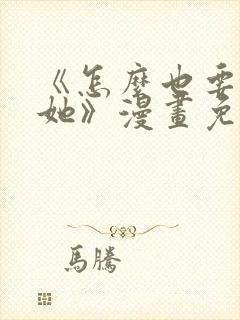 《怎麼也要
她》漫畫免
馬騰